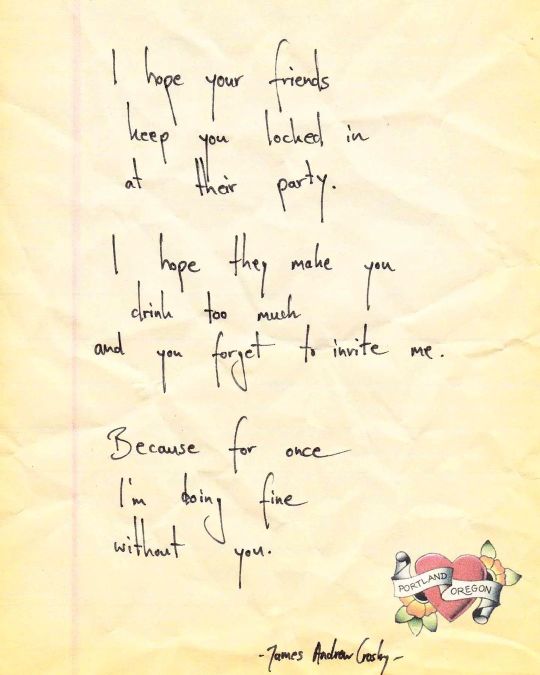 I hope your friends
keep you locked in
at their party.
I hope they make you
drink too much
and you forget to invite me.
Because for once
I'm doing fine
without you.
PORTLAND OREGON
-James Andrew Crosby-